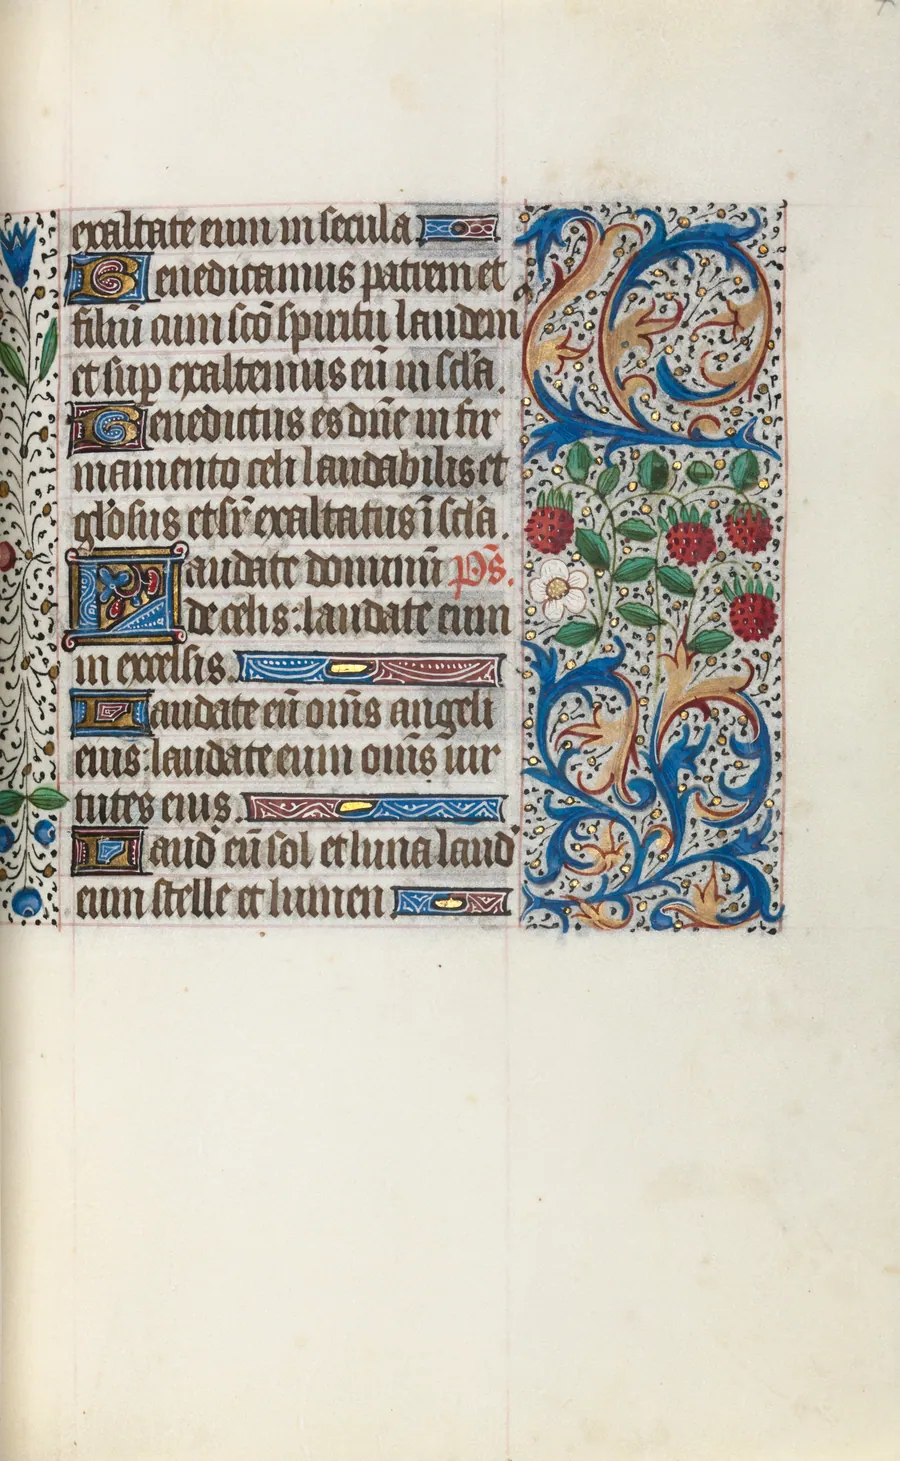 exaltate eum in secula
Benedicamus patrem et
filiū cum scō spiritu laudem
et sup exaltemus eū in scl'a.
Benedictus es dñe in fir
mamento celi laudabilis et
gl'osus et sr̄ exaltatus ī scl'a.
Laudate dominū p̄s.
de celis: laudate eum
in excelsis.
Laudate eū om̄s angeli
eius: laudate eum om̄s uir
tutes eius.
Laud' eū sol et luna laud'
eum stelle et lumen